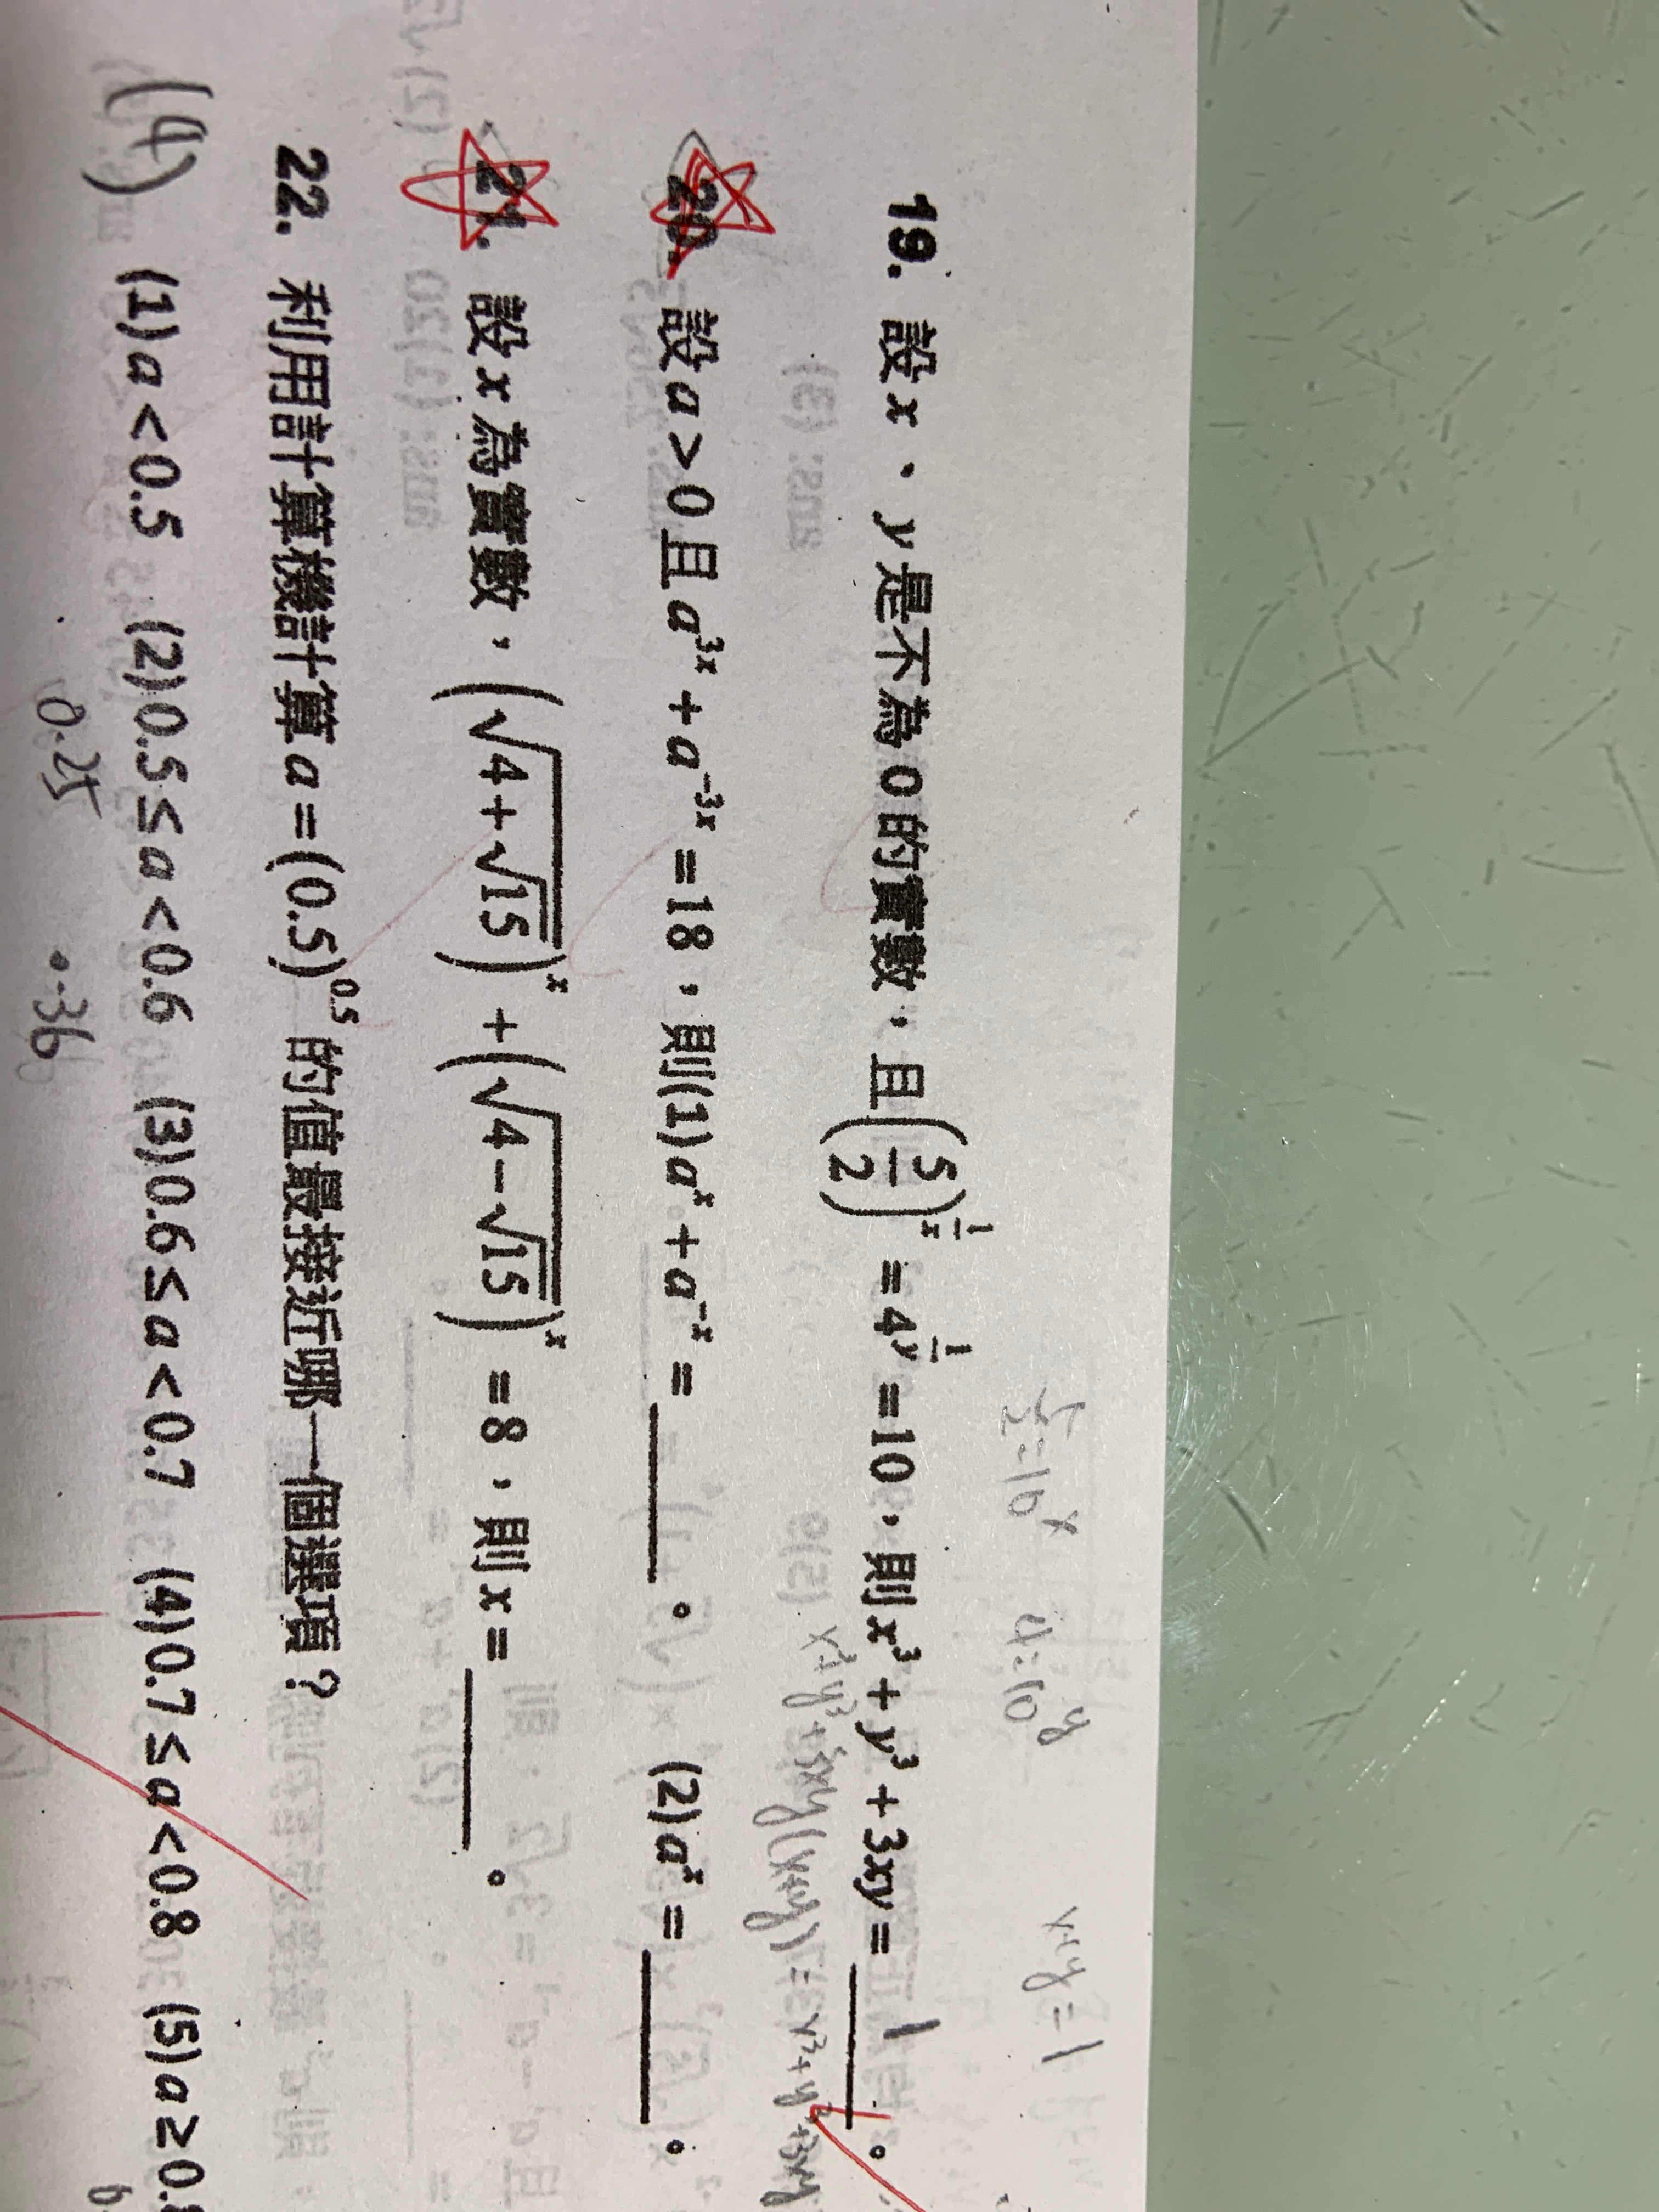 ½=10^x 4=10^y x+y=1
19. 設 x、y 是不為 0 的實數，且(5/2)^(1/x) = 4^(1/y) = 10，則 x³ + y³ + 3xy = 1 。
x³+y³+3xy(x+y)=x³+y³+3xy
20. 設 a > 0 且 a^(3x) + a^(-3x) = 18，則(1) a^x + a^(-x) = ______。 (2) a^x = ______。
21. 設 x 為實數，(√(4+√15))^x + (√(4-√15))^x = 8，則 x = ______。
22. 利用計算機計算 a = (0.5)^0.5 的值最接近哪一個選項？
(4) (1) a < 0.5 (2) 0.5 ≤ a < 0.6 (3) 0.6 ≤ a < 0.7 (4) 0.7 ≤ a < 0.8 (5) a ≥ 0.
0.25 0.36